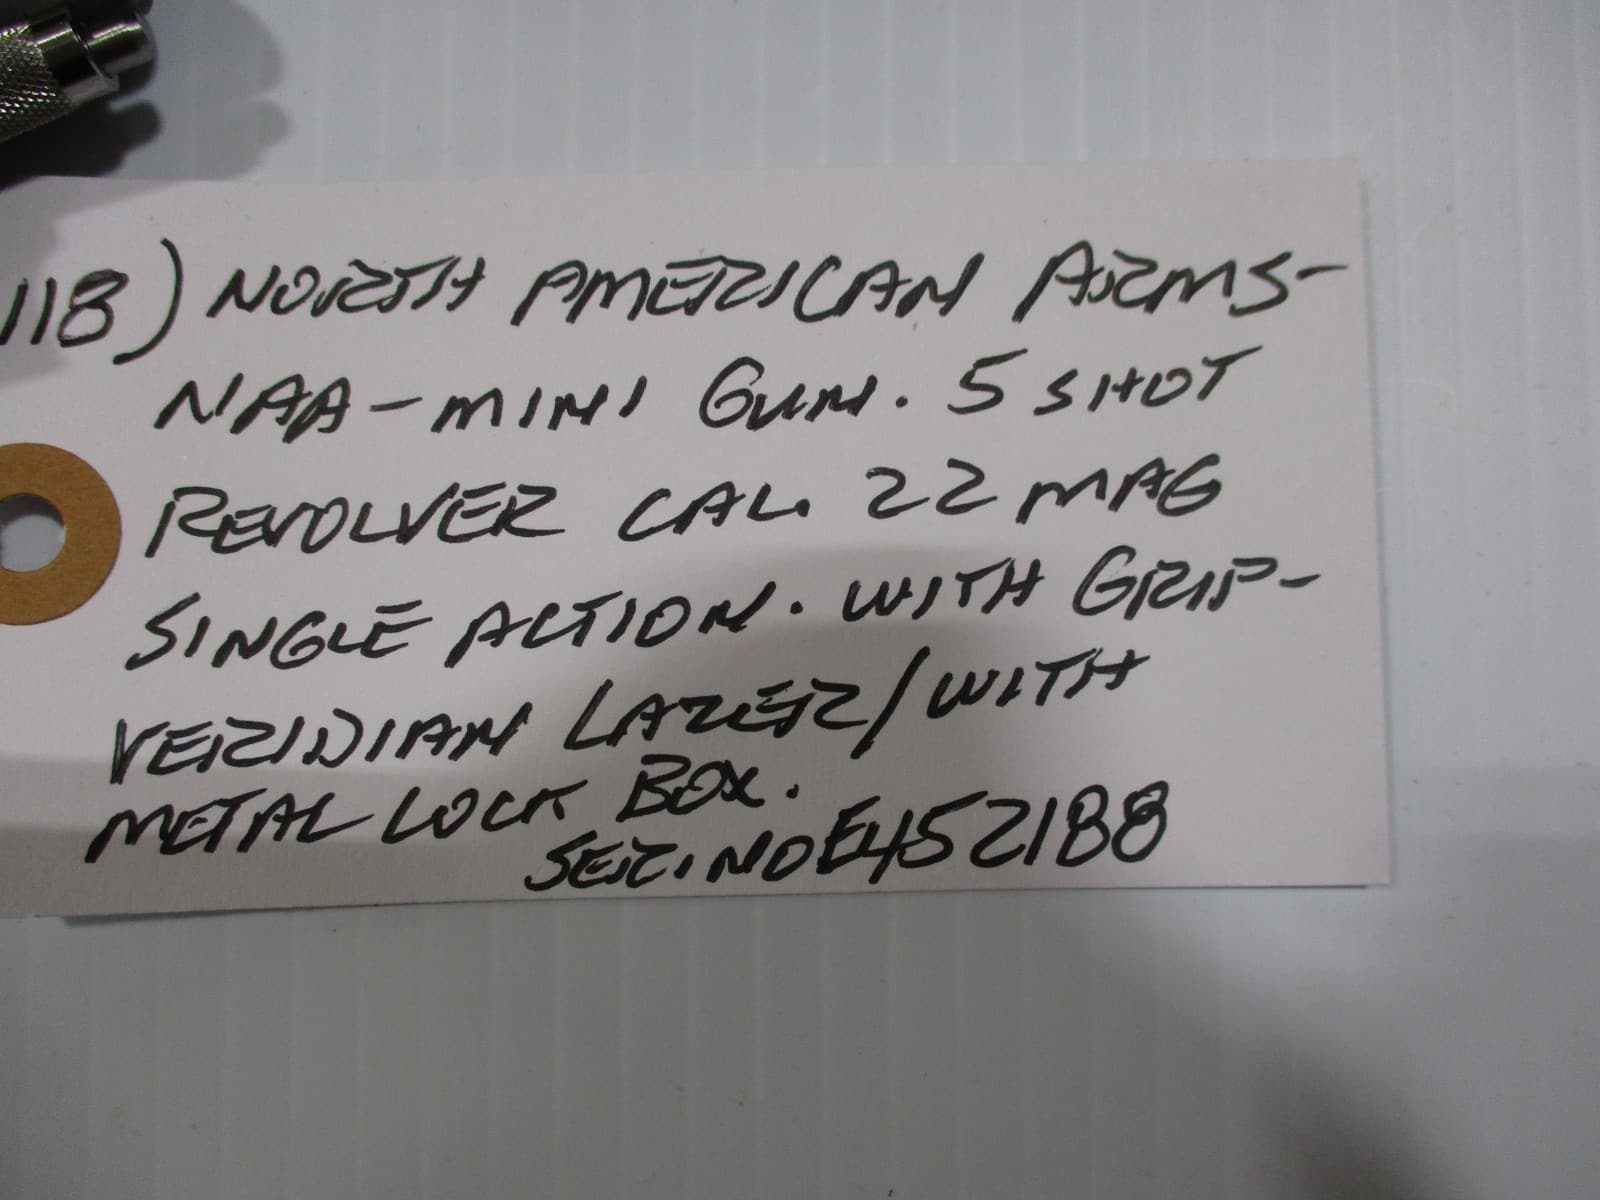 118) NORTH AMERICAN ARMS-
NAA-MINI GUN. 5 SHOT
REVOLVER CAL. 22 MAG
SINGLE ACTION. WITH GRIP-
VERIDIAN LAZER/WITH
METAL LOCK BOX.
SER.NO E452188